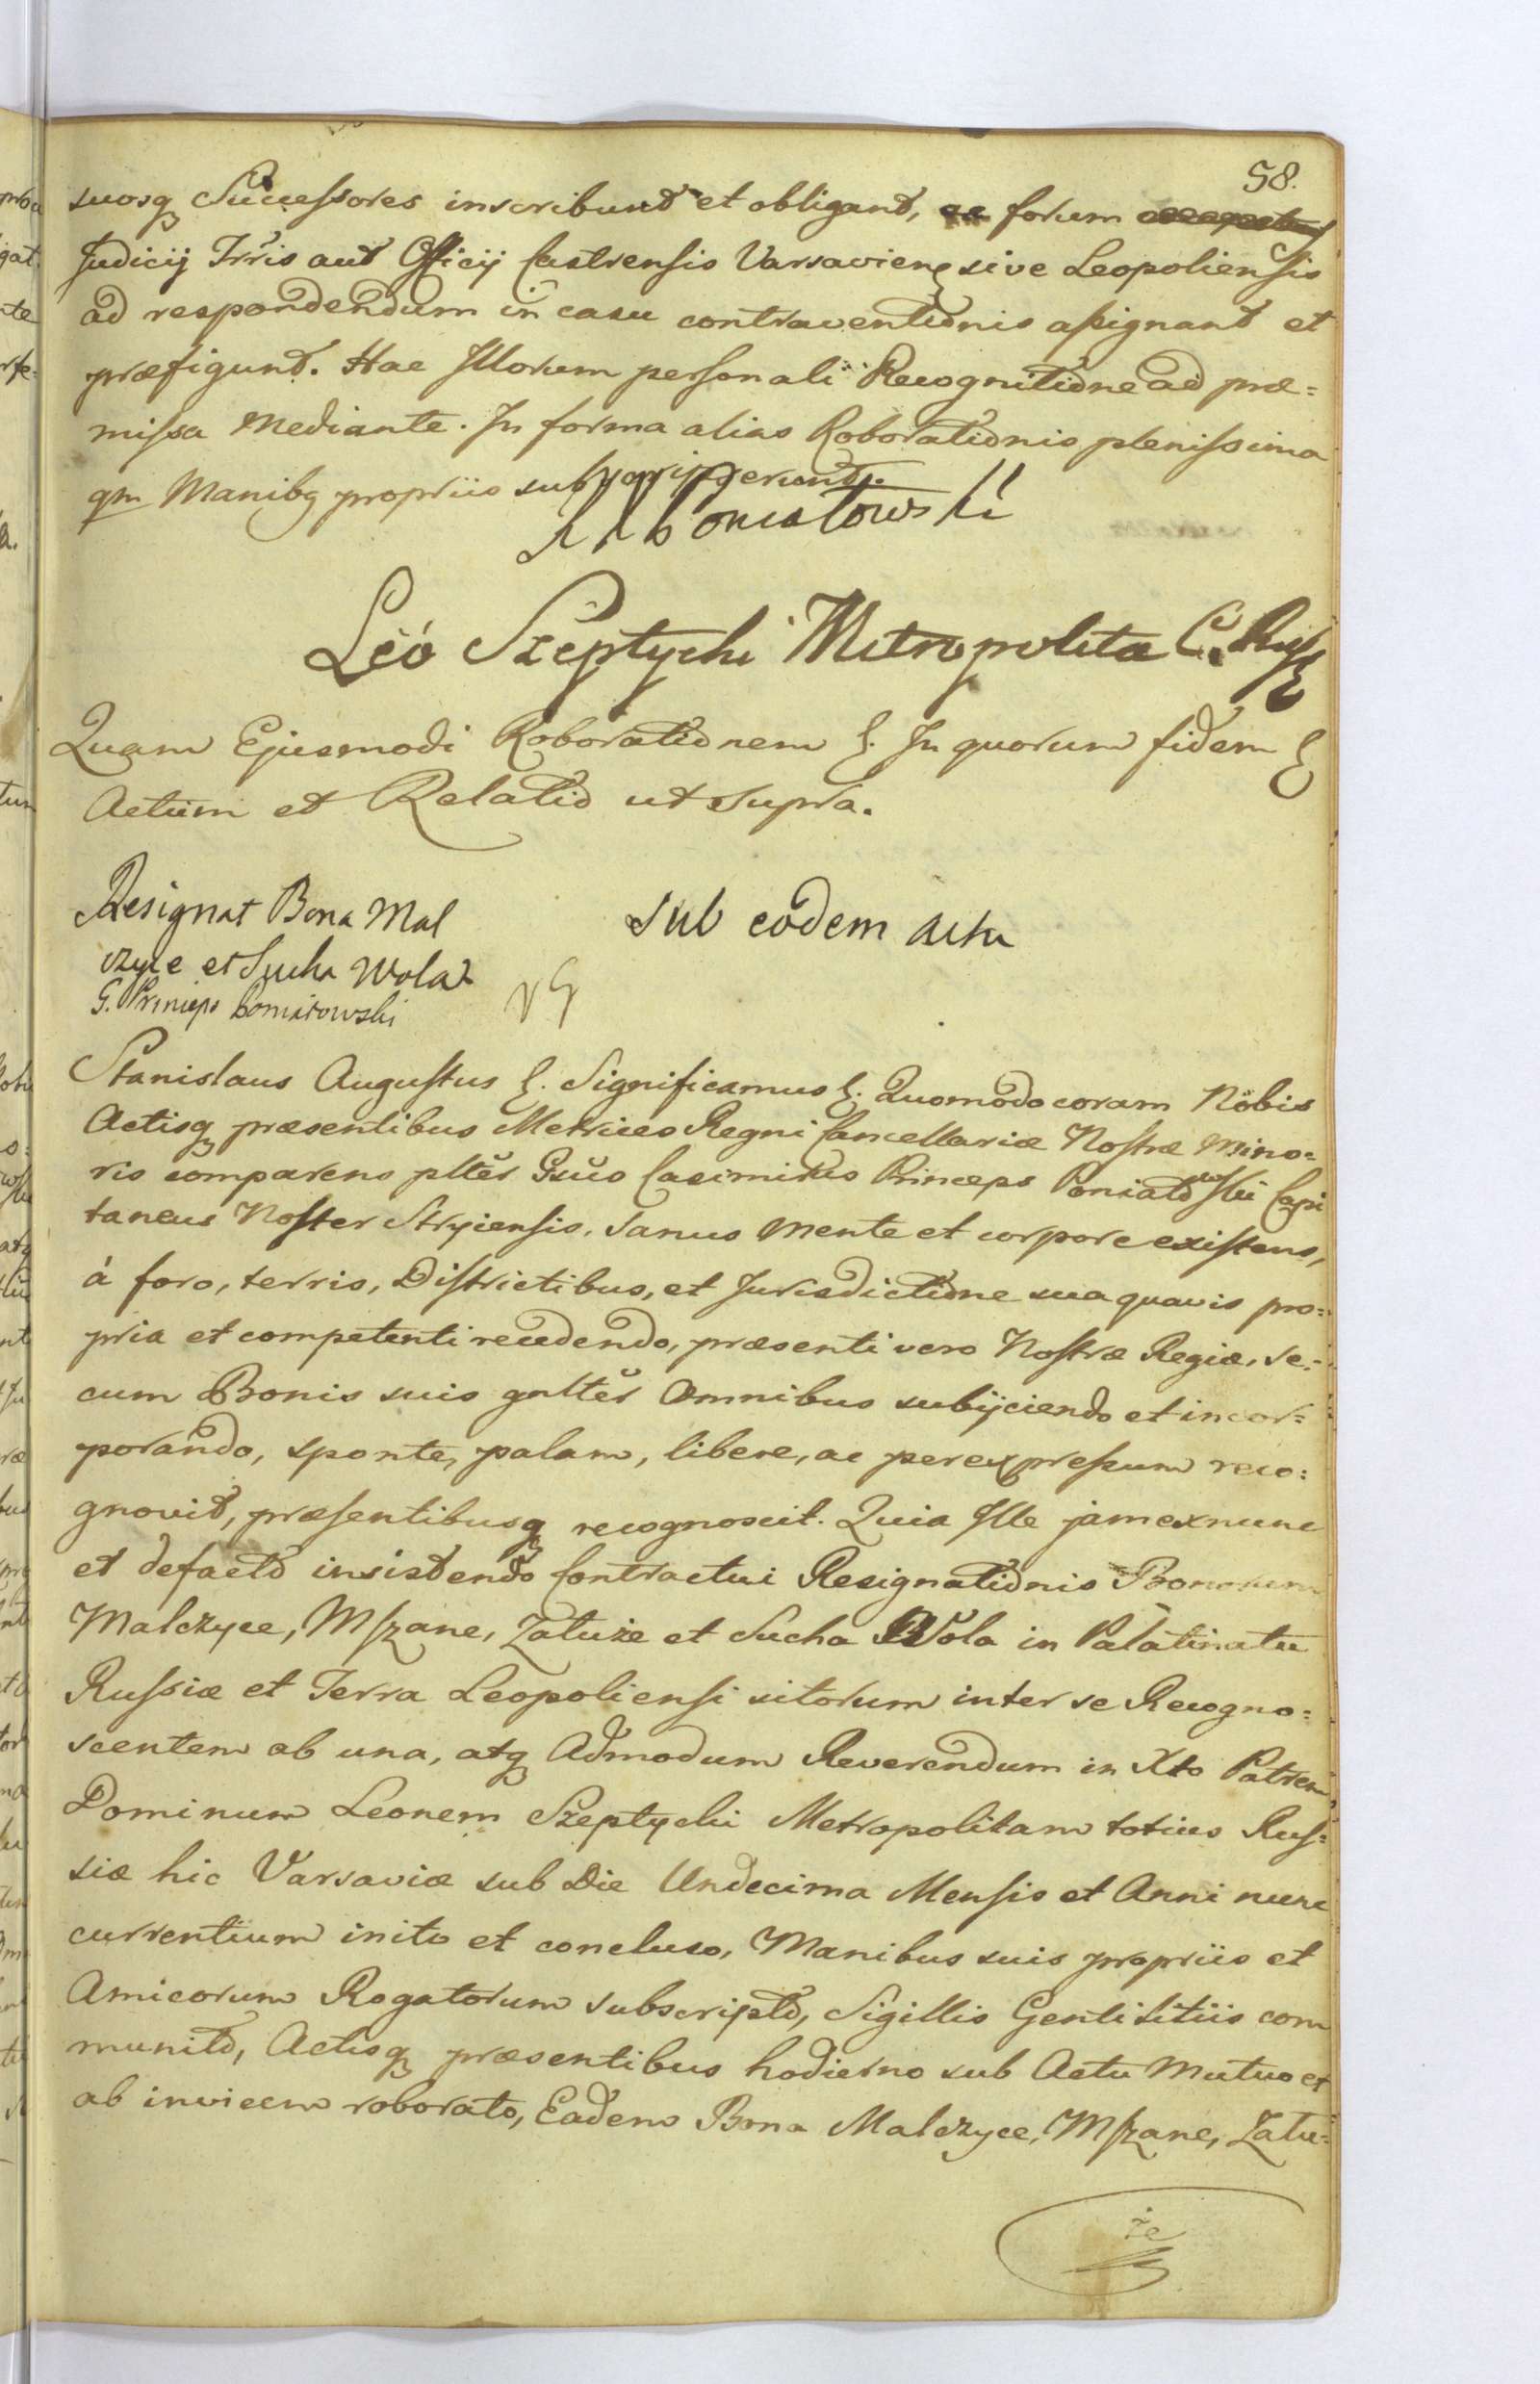 58.
suosq Successores inscribunt et obligant, ac forum
Judicij Trris aut Officij Castrensis Varsavien sive Leopoliensis
ad respondendum in casu contraventionis assignant et
præfigunt. Hac Illorum personali Recognitione ad præ=
missa Mediante. In forma alias Roborationis plenissima
qm Manibq propriis subscripserunt.
Poniatowski
Leo Szeptycki Metropolita C. Russ
Quam Ejusmodi Roborationem &. In quorum fidem &
Actum et Relatio ut supra.
Resignat Bona Mal
czyce et Sucha Wola
G. Princeps Poniatowski
Sub eodem actu
Stanislaus Augustus &. Significamus &. Quomodo coram Nobis
Actisq præsentibus Metrices Regni Cancellariæ Nostræ Mino=
ris comparens plter Gsus Casimirus Princeps Poniatowski Capi
taneus Noster Stryiensis, sanus mente et corpore existens,
à foro, terris, Districtibus, et Jurisdictione sua quavis pro=
pria et competenti recedendo, præsenti vero Nostræ Regiæ, se=
cum Bonis suis gnlter Omnibus subijciendo et incor=
porando, sponte, palam, libere, ac per expressum reco=
gnovit, præsentibusq recognoscit. Quia Ille jam exnunc
et defacto insistendo Contractui Resignationis Bonorum
Malczyce, Mszane, Zatuże et Sucha Wola in Palatinatu
Russiæ et Terra Leopoliensi sitorum inter se Recogno=
scentem ab una, atq Admodum Reverendum in Xto Patrem
Dominum Leonem Szeptycki Metropolitam totius Rus=
siæ hic Varsaviæ sub Die Undecima Mensis et Anni nunc
currentium inito et concluso, Manibus suis propriis et
Amicorum Rogatorum subscripto, Sigillis Gentilitiis com
munito, Actisq præsentibus hodierno sub Actu Mutuo et
ab invicem roborato, Eadem Bona Malczyce, Mszane, Zatu=
że